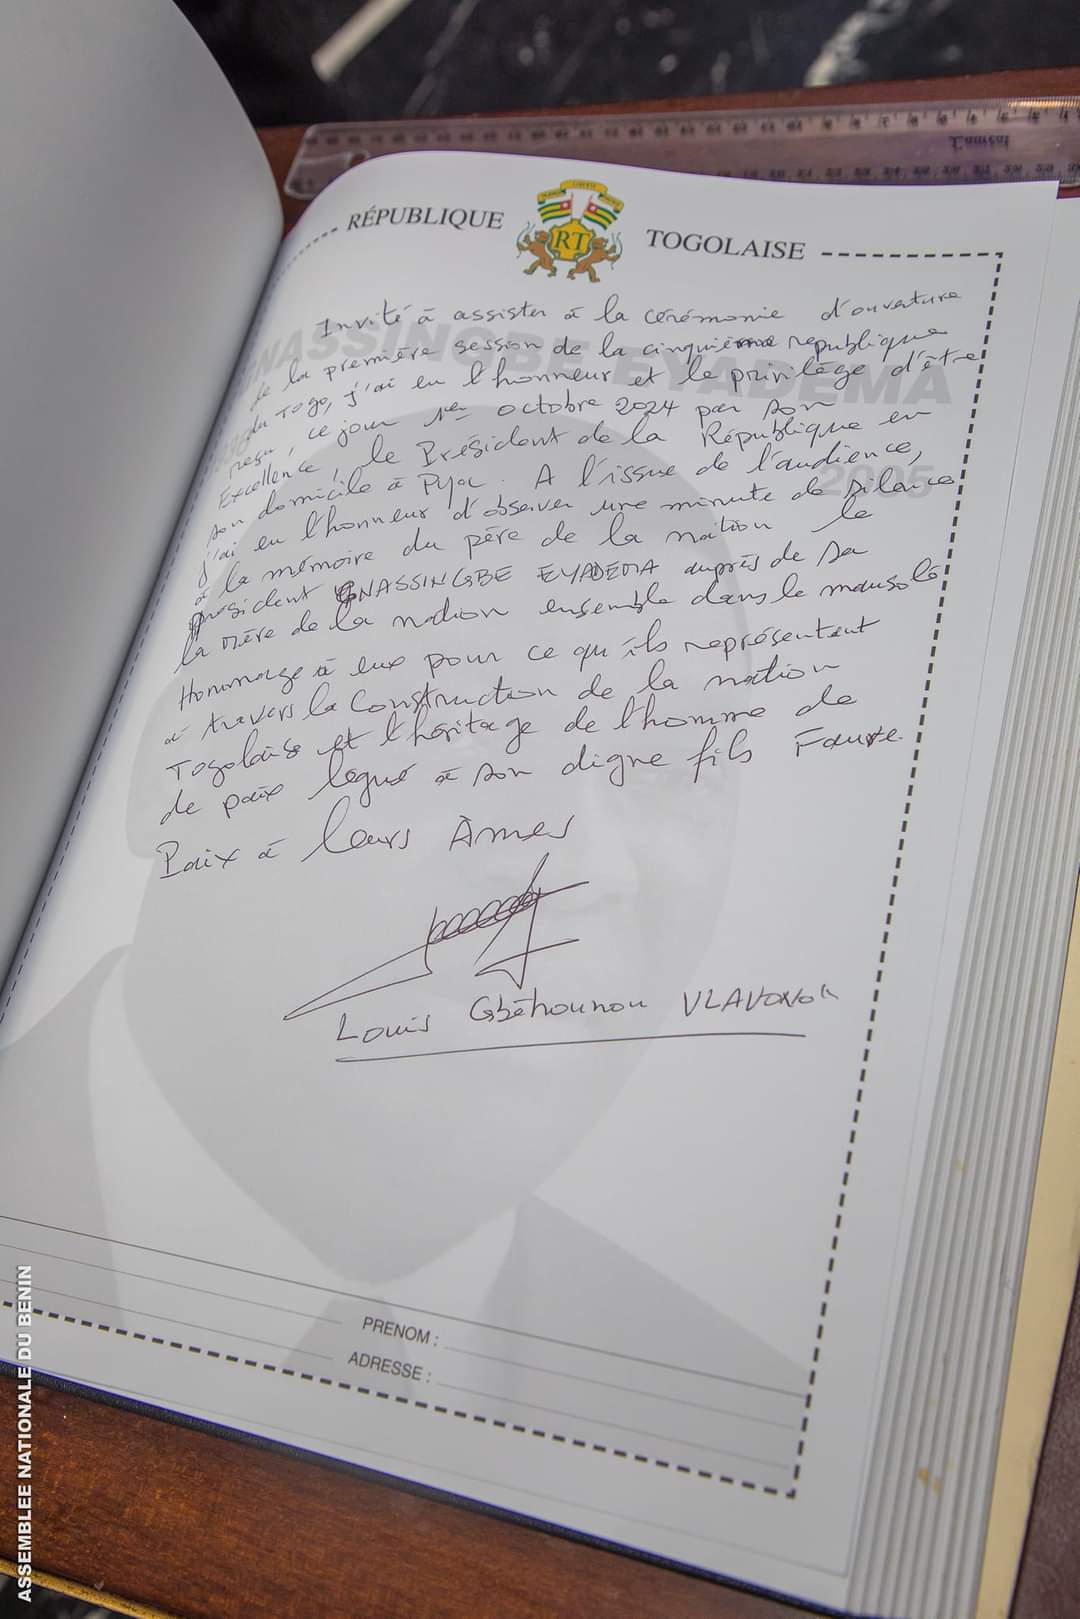 RÉPUBLIQUE TOGOLAISE
RT
GNASSINGBE EYADEMA
2005
Invité à assister à la cérémonie d'ouverture
de la première session de la cinquième republique
du Togo, j'ai eu l'honneur et le privilège d'être
reçu, ce jour 1er octobre 2024 par son
Excellence, le Président de la République en
son domicile à Pya. A l'issue de l'audience,
j'ai eu l'honneur d'observer une minute de silence
à la mémoire du père de la nation le
président GNASSINGBE EYADEMA auprès de sa
la mère de la nation ensemble dans le mausolé
Hommage à eux pour ce qu'ils représentent
à travers la construction de la nation
Togolaise et l'héritage de l'homme de
de paix légué à son digne fils Faure
Paix à leurs Âmes
Louis Gbèhounou VLAVONOU
PRENOM :
ADRESSE :
ASSEMBLEE NATIONALE DU BENIN